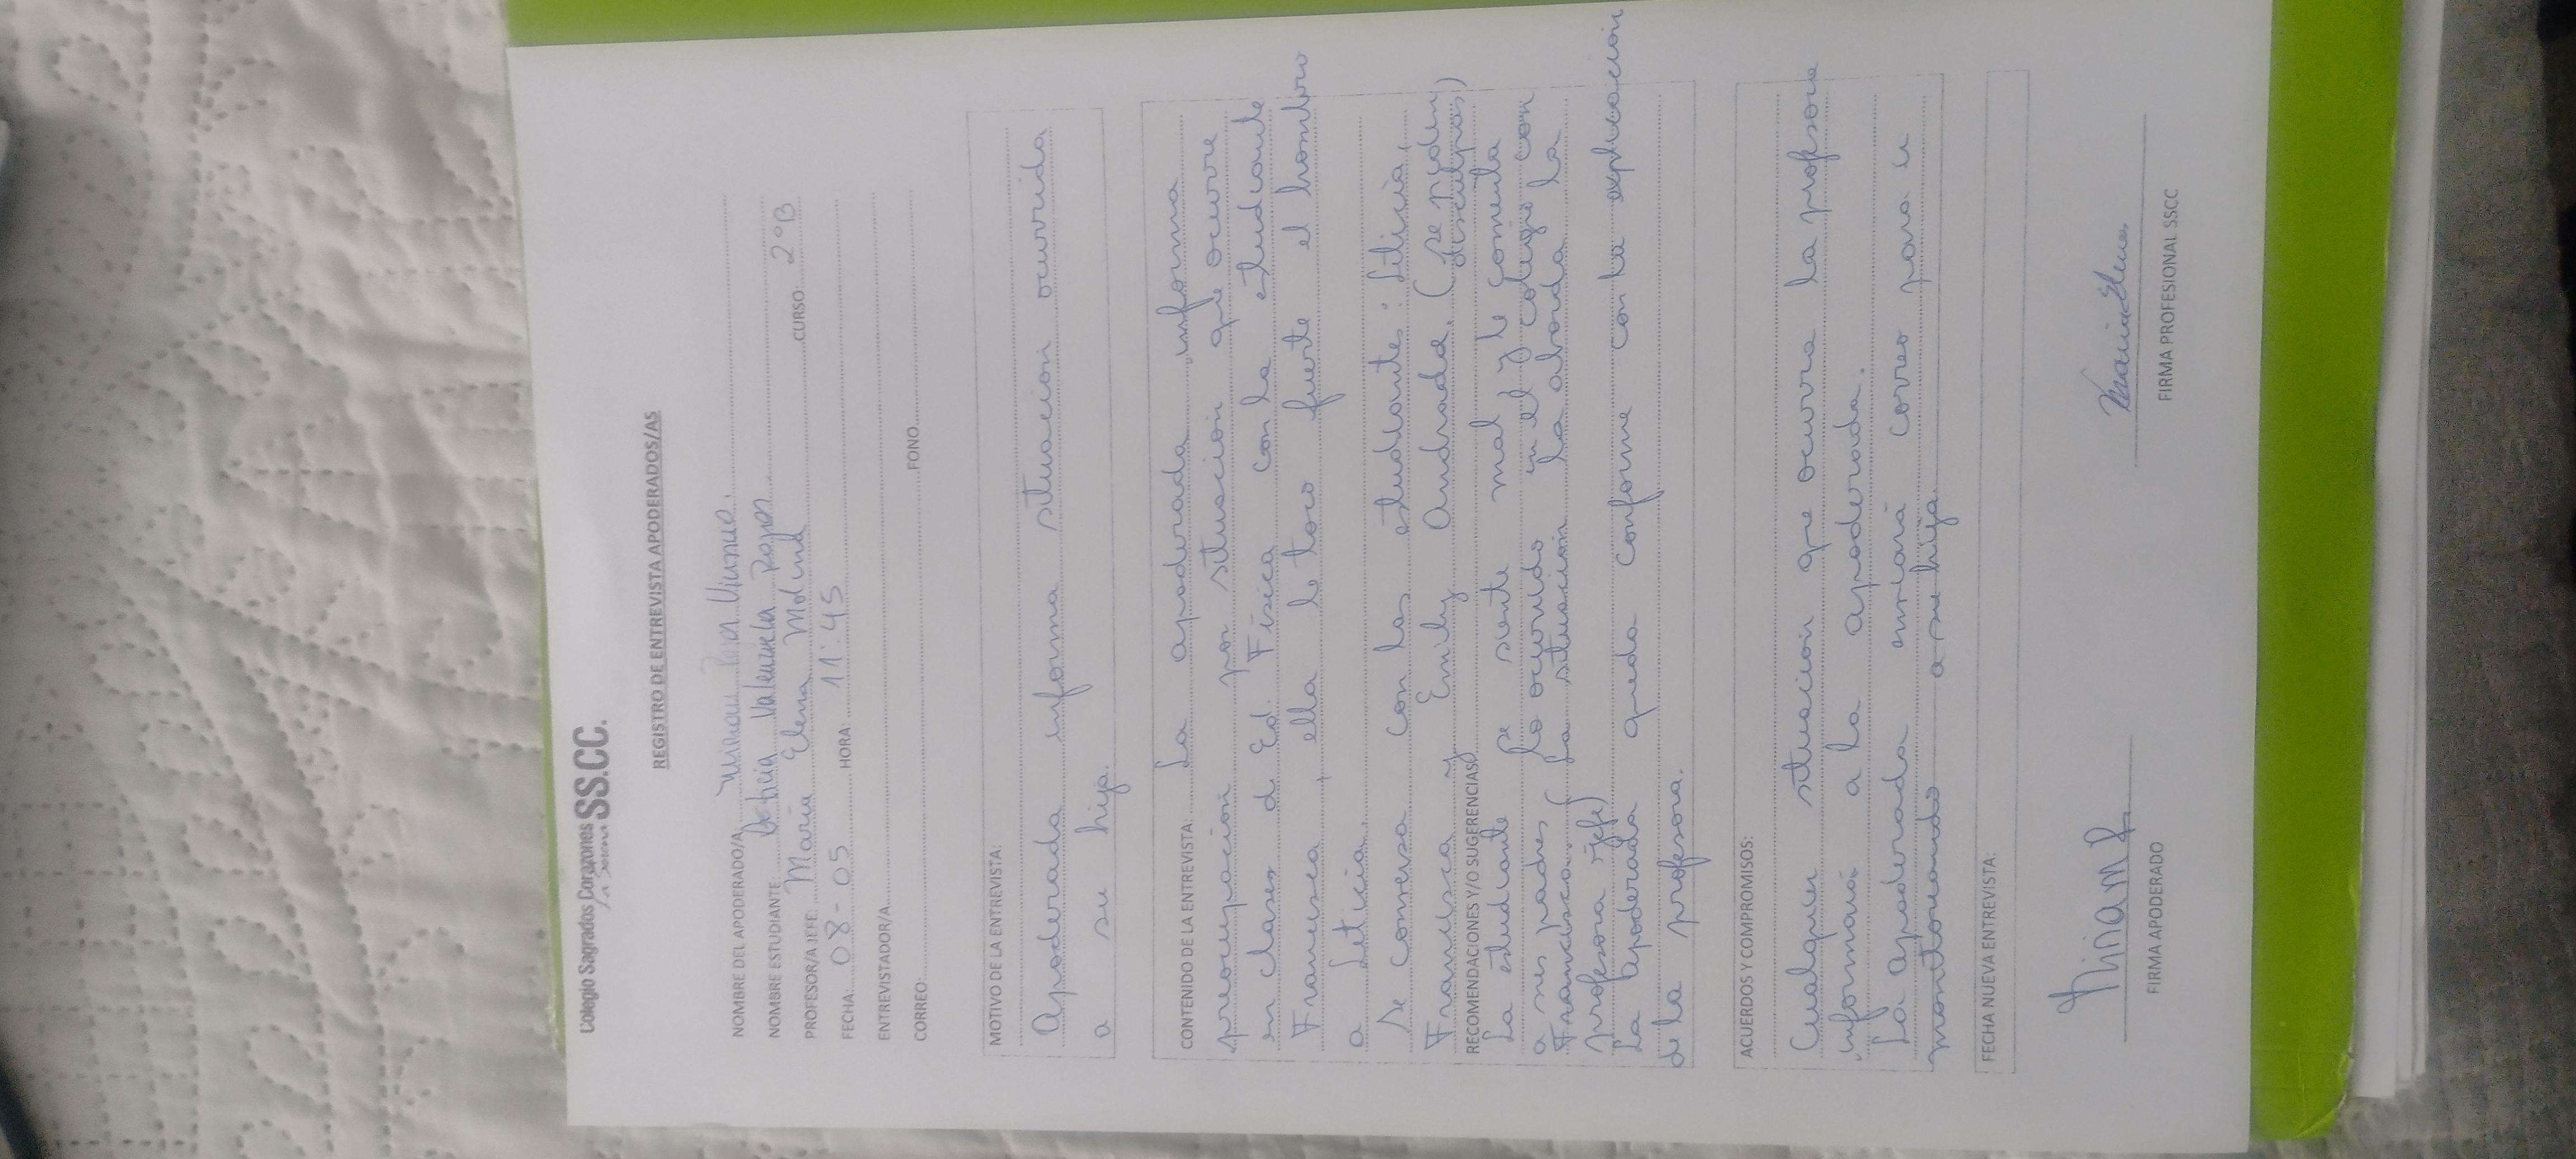 Colegio Sagrados Corazones SS.CC.
La Serena
REGISTRO DE ENTREVISTA APODERADOS/AS
NOMBRE DEL APODERADO/A
NOMBRE ESTUDIANTE Valenzuela Rojas
PROFESOR/A JEFE: María Elena Molina CURSO: 2°B
FECHA: 08-05 HORA: 11:45
ENTREVISTADOR/A
CORREO: FONO
MOTIVO DE LA ENTREVISTA:
Apoderada informa situacion ocurrida
a su hija.
CONTENIDO DE LA ENTREVISTA: La apoderada informa
preocupación por situacion que ocurre
en clases de Ed. Física con la estudiante
Francisca, ella le toco fuerte el hombro
a Leticia.
Se conversa con las estudiante: Leticia,
Francisca y Emily Andrada. (se piden
disculpas)
RECOMENDACIONES Y/O SUGERENCIAS
La estudiante se siente mal y le comenta
a sus padres lo ocurrido en el colegio con
Francisca. (La situacion la aborda la
profesora jefe)
La apoderada queda conforme con la explicacion
de la profesora.
ACUERDOS Y COMPROMISOS:
Cualquier situacion que ocurra la profesora
informará a la apoderada.
La apoderada enviará correo para ir
monitoreando a su hija.
FECHA NUEVA ENTREVISTA:
Miriam R
FIRMA APODERADO
María Elena
FIRMA PROFESIONAL SSCC